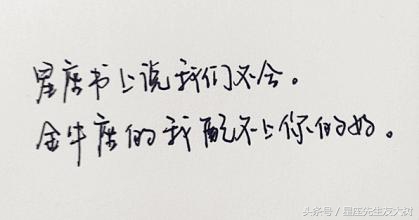 星座书上说我们不合。
金牛座的我配不上你的好。
头条号 / 星座先生友大树